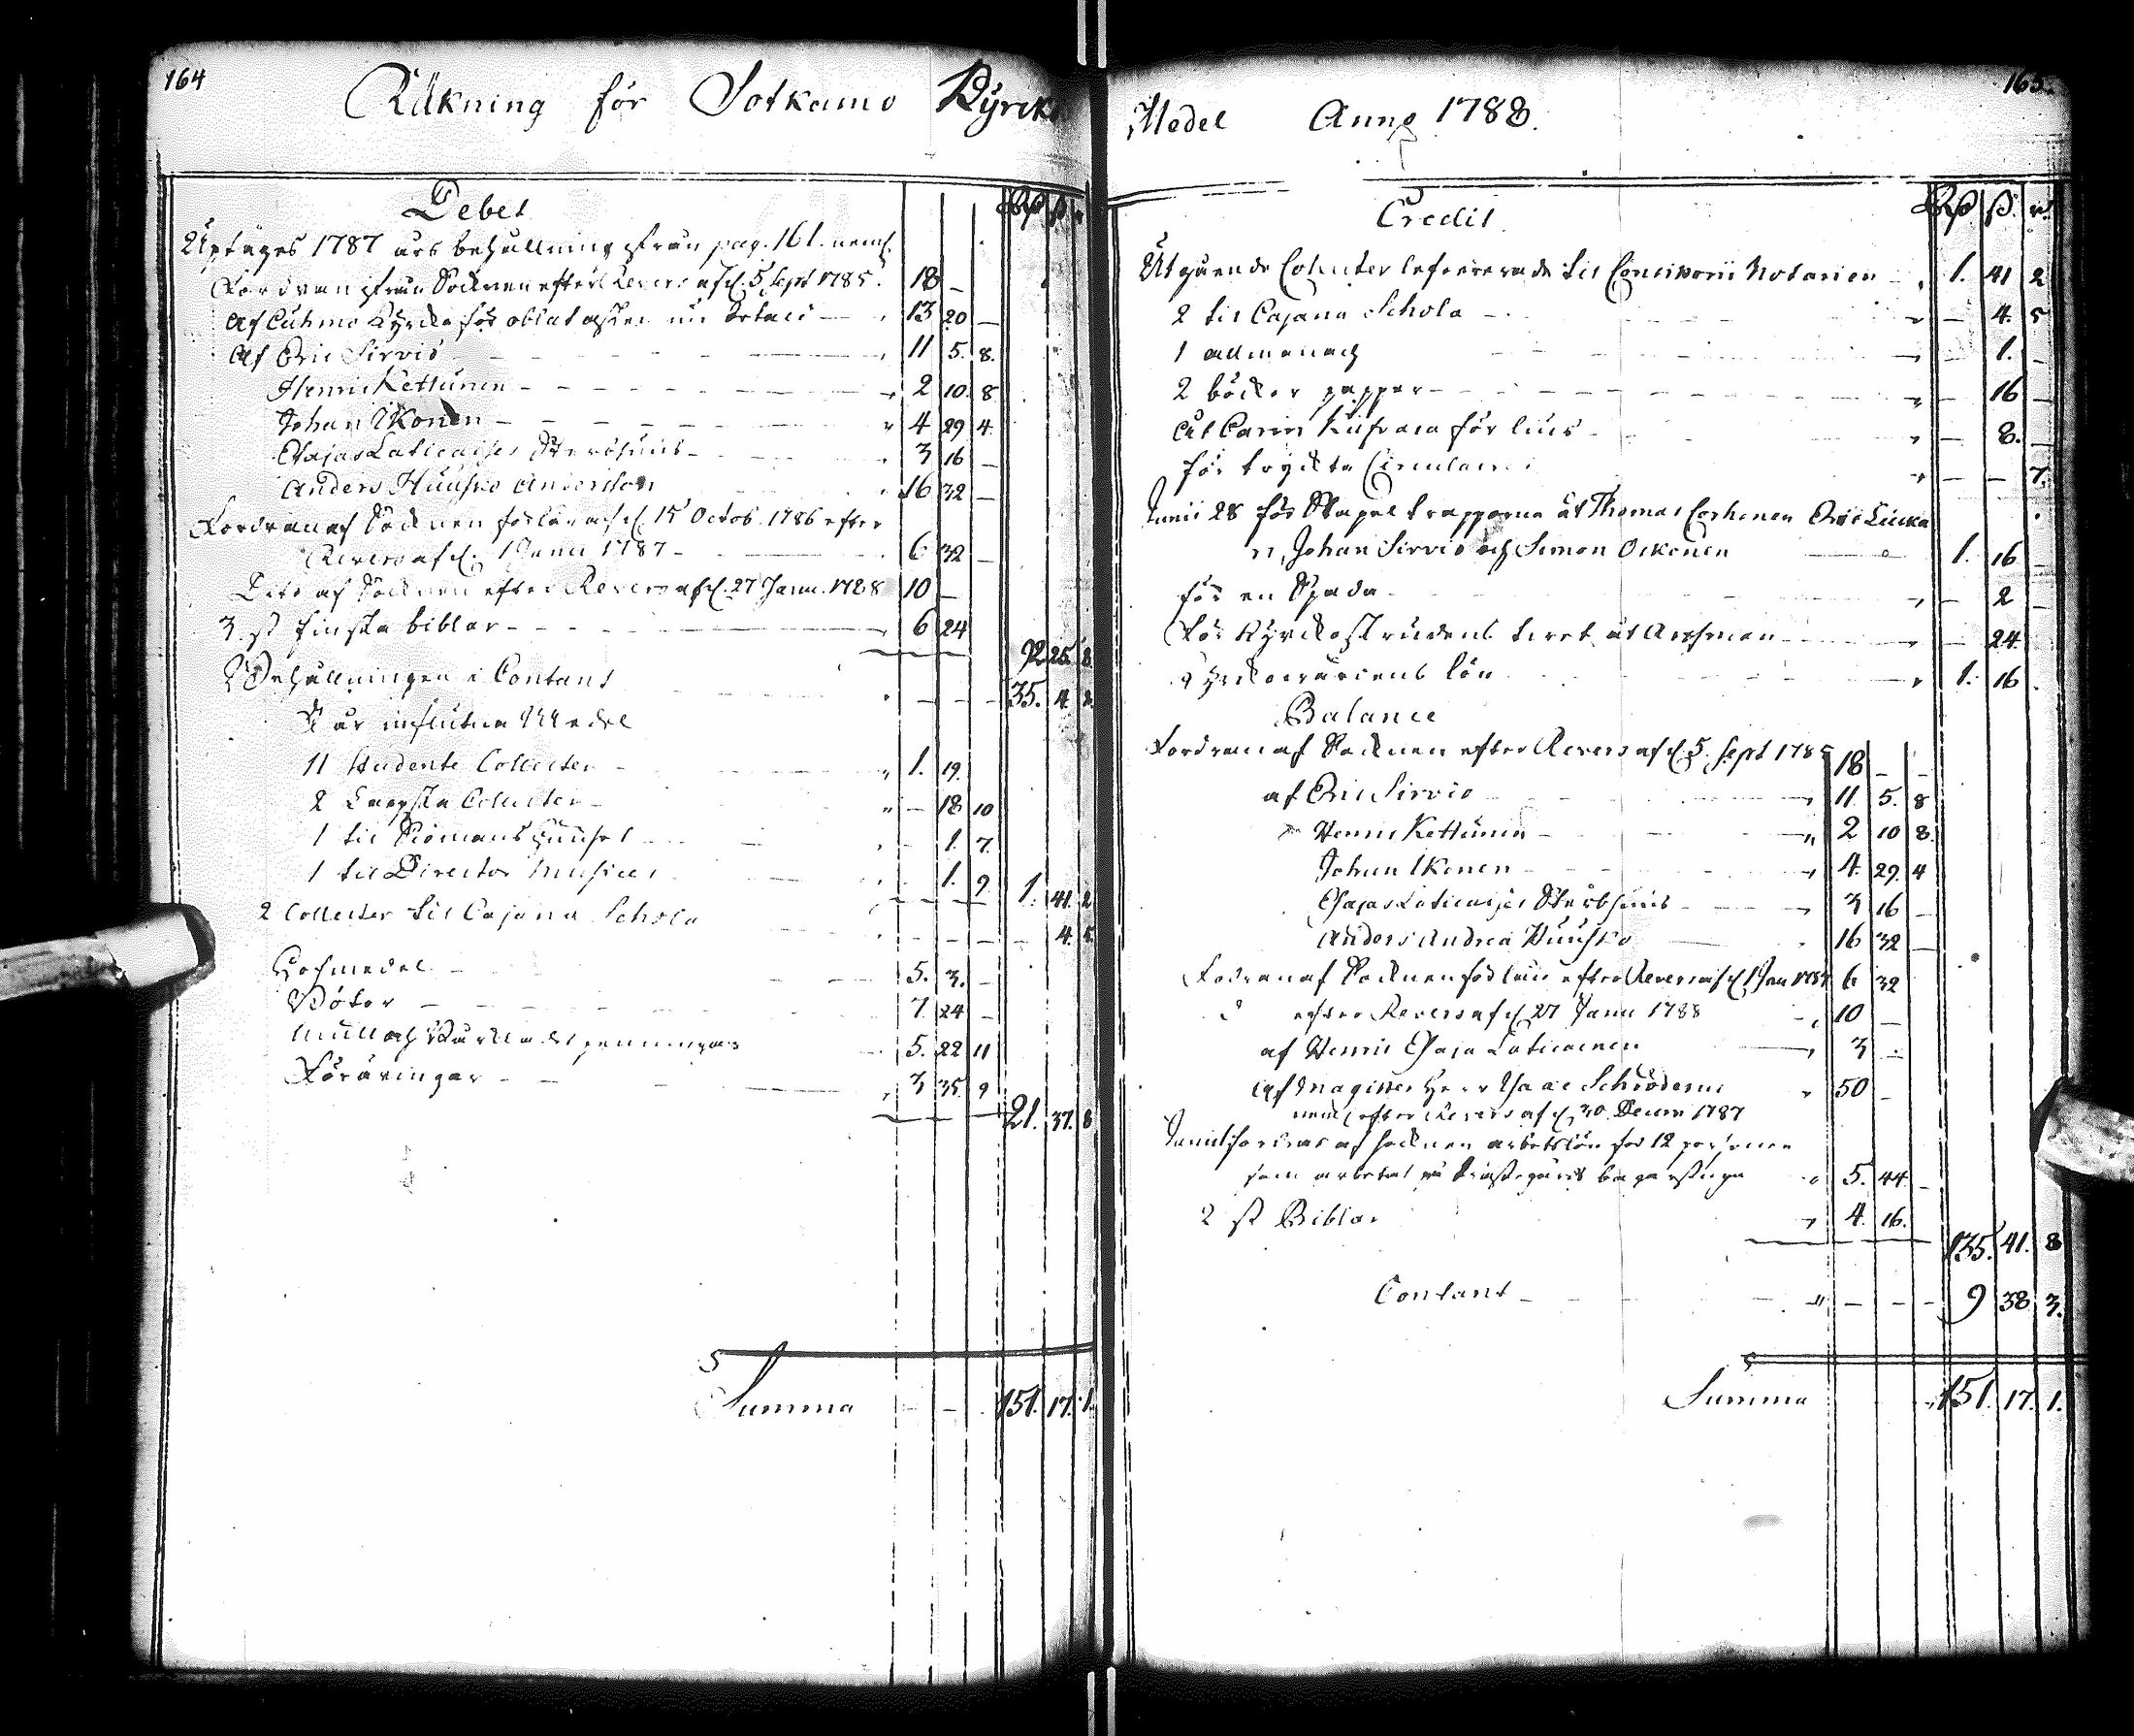 164
Räkning för Sotkamo Kyrck
Debet
Rd ß r
Uptages 1787 års behållning ifrån pag. 161. neml.
Fordran ifrån Socknen efter Revers af d. 5 Sept 1785. 18 –
Af Cuhmo Kyrcka för oblat asken 13 20 –
Af Eric Sirvio 11 5. 8.
Henric Kettunen 2 10. 8
Johan Ikonen 4 29 4.
Esaias Laticaises Sterbhuus 3 16 –
Anders Huusko Andersson 16 32 –
Fordran af Socknen för lån af d. 15 Octob. 1786 efter
Revers af d. 1 Janu 1787 6 32 –
Dito af Socknen efter Revers af d. 27 Janu. 1788 10 –
3 st finska biblar 6 24
92 25 8
Behållningen i Contant 35. 4 2.
I år influtne Medel
11 Studente Collecter 1. 19.
2 Lappska Collecter – 18 10
1 til Siömanshuuset – 1. 7.
1 til Director Musices 1. 9 1. 41. 2
2 Collecter til Cajana Schola 4. 5.
Håfmedel 5. 3. –
Böter 7 24 –
Mull och penningar 5. 22 11
Föräringar 3 35. 9
21. 37. 8
Summa 151. 17. 1.
165.
Medel Anno 1788.
Credit
Rd ß. r.
Utgående Collecter lefvererade til Consistorii Notarien 1. 41 2
2 til Cajana Schola – 4. 5
1 allmanach – 1. –
2 böcker papper – 16 –
åt Carin för lius – 8. –
för tryckte Circulairer – – 7.
Junii 28 för Stapel trapporna åt Thomas Corhonen Eric
n, Johan Sirvio och Simon Oikonen 1. 16 –
för en Spada – 2 –
För Kyrckostrudens – 24.
Kyrckowäriens lön 1. 16 .
Balance
Fordran af Socknen efter Revers af d. 5. Sept 1785 18 – –
af Eric Sirvio 11. 5. 8
Henric Kettunen 2 10 8.
Johan Ikonen 4. 29. 4
Esaias Laticaises Sterbhuus 3 16 –
Anders Andersson Huusko 16 32 –
Fodran af Socknen för lån efter Revers af d. 1 Jan 1787 6 32
efter Revers af d. 27 Janu 1788 10 –
af Henric Esaia Laticainen 3 –
Af Magister Herr Isaac Schroderus 50 –
neml. efter Revers af d. 30. Decem 1787
fordras af Socknen arbetslön för 12 personer
som arbetat på 5. 44. –
2 st Biblar 4. 16.
135. 41. 8
Contant – – – 9 38 3.
Summa 151. 17. 1.